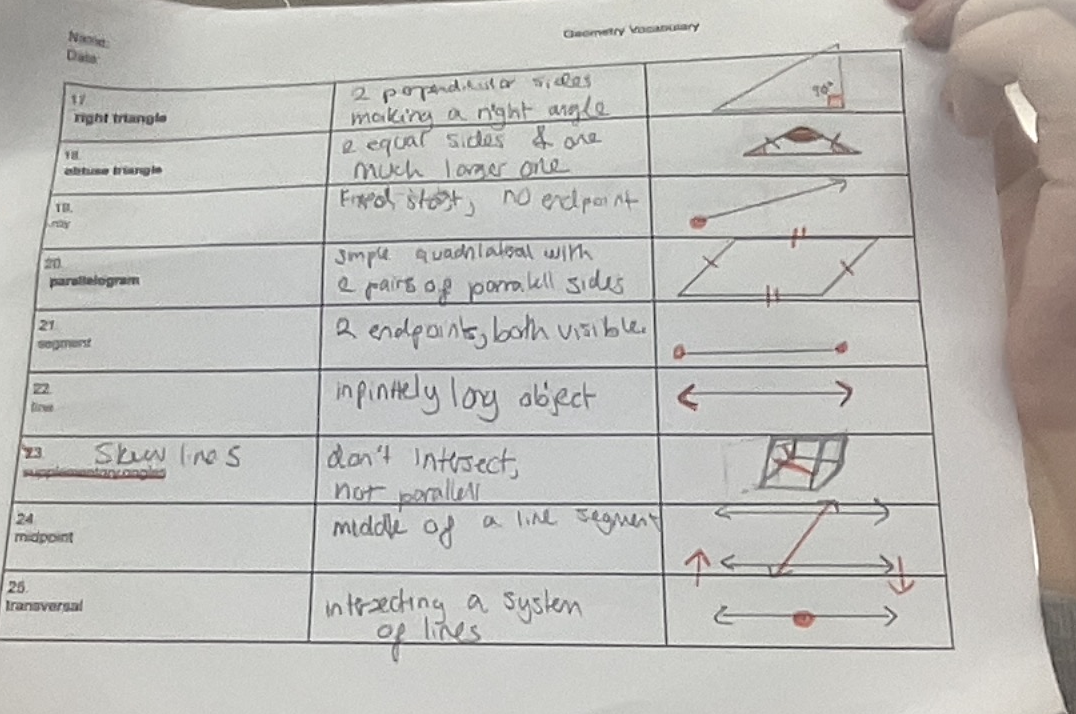 Name:
Date:
Geometry Vocabulary
17.
right triangle
2 perpendicular sides
making a right angle
90°
18.
obtuse triangle
2 equal sides & one
much larger one
19.
ray
Fixed start, no endpoint
20.
parallelogram
simple quadrilateral with
2 pairs of parralell sides
21.
segment
2 endpoints, both visible.
22.
line
infinitely long object
23. Skew lines
supplementary angles
don't intersect,
not parallell
24.
midpoint
middle of a line segment
25.
transversal
intersecting a system
of lines